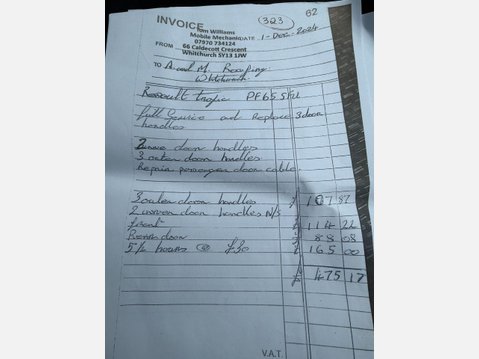 62
INVOICE 323
Tom Williams
Mobile Mechanic DATE 1-Dec-2024
07970 734124
FROM 66 Caldecott Crescent
Whitchurch SY13 1JW
TO A and M. Roofing
Whitchurch
Renault trafic PF65
full Service and Replace 3 door
handles
2 inner door handles
3 outer door handles
Repair passenger door cable
3 outer door handles £ 107 87
2 inner door handles N/S
front £ 114 22
Rear door £ 88 08
5½ hours @ £30 £ 165 00
£ 475 17
V.A.T.